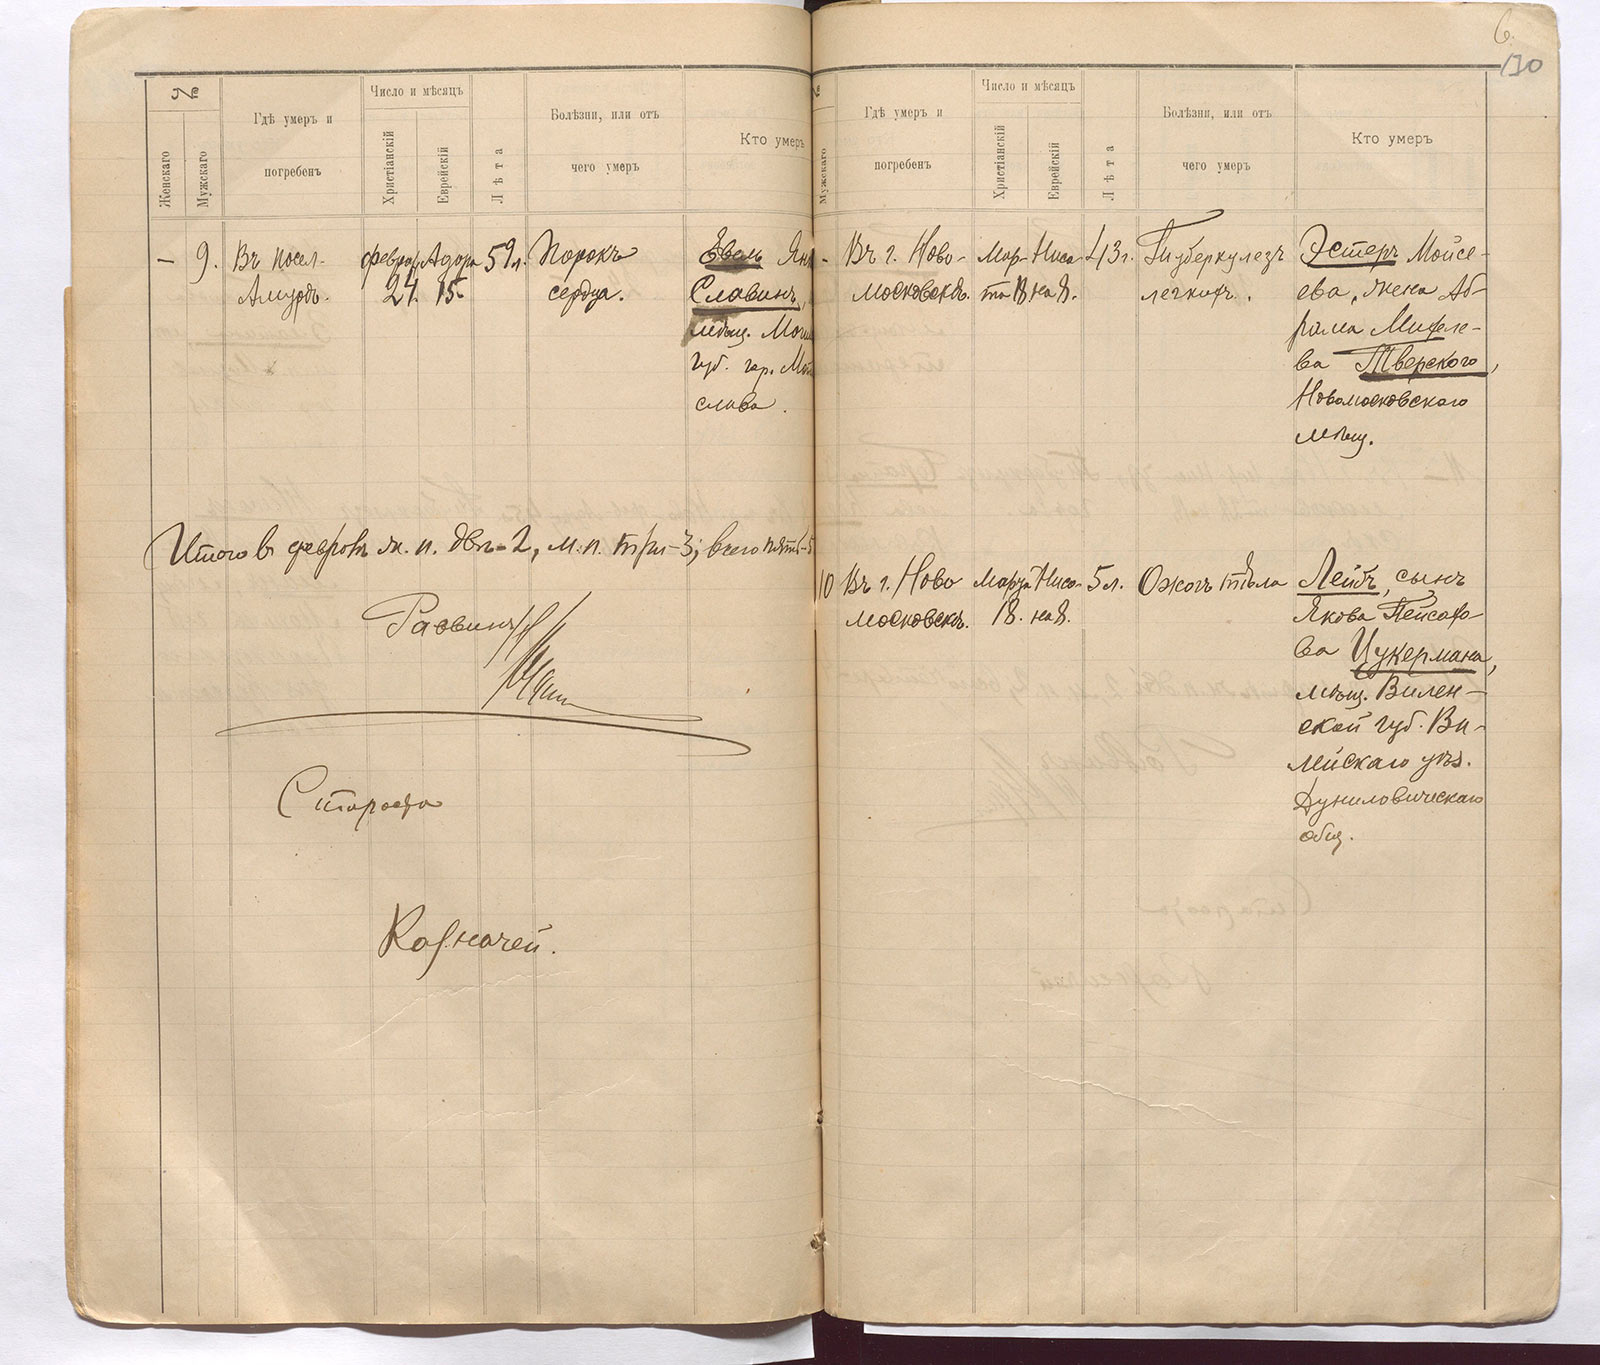 №
Женскаго
Мужскаго
Гдѣ умеръ и
погребенъ
Число и мѣсяцъ
Христіанскій
Еврейскій
Лѣта
Болѣзни, или отъ
чего умеръ
Кто умеръ
–
9.
Въ посел-
Амурѣ.
феврал
24.
Адора
15.
59 л.
Порокъ
сердца.
Славинъ,
мѣщ.
губ. гор.
слава.
Итого въ февралѣ ж. п. двѣ-2, м. п. три-3; всего пять-5
Раввинъ
Староста
Казначей.
6.
130
№
Мужскаго
Гдѣ умеръ и
погребенъ
Число и мѣсяцъ
Христіанскій
Еврейскій
Лѣта
Болѣзни, или отъ
чего умеръ
Кто умеръ
–
Въ г. Ново-
московскѣ.
Мар-
та 18.
Ниса
на 8.
43 г.
Туберкулезъ
легкихъ.
Эстеръ Мойсе-
ева, жена Аб-
рама Михеле-
ва Тверского,
Новомосковскаго
мѣщ.
10
Въ г. Ново
московскѣ.
Марта
18.
Ниса-
на 8.
5 л.
Ожогъ тѣла
Лейбъ, сынъ
Якова Пейсахо-
ва Цукермана,
мѣщ. Вилен-
ской губ. Ви-
лейскаго уѣз.
Дуниловическаго
общ.